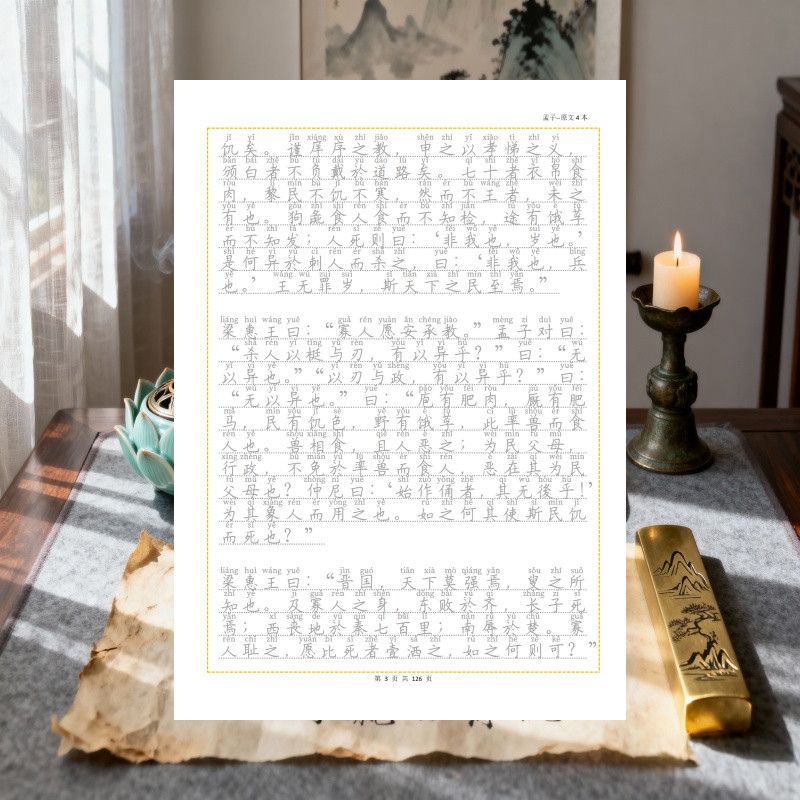 孟子-原文4本
jī yǐ jǐn xiáng xù zhī jiào shēn zhī yǐ xiào tì zhī yì
饥矣。谨庠序之教，申之以孝悌之义，
bān bái zhě bù fù dài yú dào lù yǐ qī shí zhě yī bó shí
颁白者不负戴於道路矣。七十者衣帛食
ròu lí mín bù jī bù hán rán ér bù wàng zhě wèi zhī
肉，黎民不饥不寒，然而不王者，未之
yǒu yě gǒu zhì shí rén shí ér bù zhī jiǎn tú yǒu è fú
有也。狗彘食人食而不知检，途有饿莩
ér bù zhī fā rén sǐ zé yuē fēi wǒ yě suì yě
而不知发；人死则曰：‘非我也，岁也。’
shì hé yì yú cì rén ér shā zhī yuē fēi wǒ yě bīng
是何异於刺人而杀之，曰：‘非我也，兵
yě wáng wú zuì suì sī tiān xià zhī mín zhì yān
也。’王无罪岁，斯天下之民至焉。”
liáng huì wáng yuē guǎ rén yuàn ān chéng jiào mèng zǐ duì yuē
梁惠王曰：“寡人愿安承教。”孟子对曰：
shā rén yǐ tǐng yǔ rèn yǒu yǐ yì hū yuē wú
“杀人以梃与刃，有以异乎？”曰：“无
yǐ yì yě yǐ rèn yǔ zhèng yǒu yǐ yì hū yuē
以异也。”“以刃与政，有以异乎？”曰：
wú yǐ yì yě yuē páo yǒu féi ròu jiù yǒu féi
“无以异也。”曰：“庖有肥肉，厩有肥
mǎ mín yǒu jī sè yě yǒu è fú cǐ lǜ shòu ér shí
马，民有饥色，野有饿莩，此率兽而食
rén yě shòu xiāng shí qiě rén è zhī wéi mín fù mǔ
人也。兽相食，且人恶之；为民父母，
xíng zhèng bù miǎn yú lǜ shòu ér shí rén è zài qí wèi mín
行政，不免於率兽而食人，恶在其为民
fù mǔ yě zhòng ní yuē shǐ zuò yǒng zhě qí wú hòu hū
父母也？仲尼曰：‘始作俑者，其无後乎！’
wèi qí xiàng rén ér yòng zhī yě rú zhī hé qí shǐ sī mín jī
为其象人而用之也。如之何其使斯民饥
ér sǐ yě
而死也？”
liáng huì wáng yuē jìn guó tiān xià mò qiáng yān sǒu zhī suǒ
梁惠王曰：“晋国，天下莫强焉，叟之所
zhī yě jí guǎ rén zhī shēn dōng bài yú qí zhǎng zǐ sǐ
知也。及寡人之身，东败於齐，长子死
yān xī sàng dì yú qín qī bǎi lǐ nán rǔ yú chǔ guǎ
焉；西丧地於秦七百里；南辱於楚。寡
rén chǐ zhī yuàn bǐ sǐ zhě yī sǎ zhī rú zhī hé zé kě
人耻之，愿比死者壹洒之，如之何则可？”
第 3 页 共 126 页